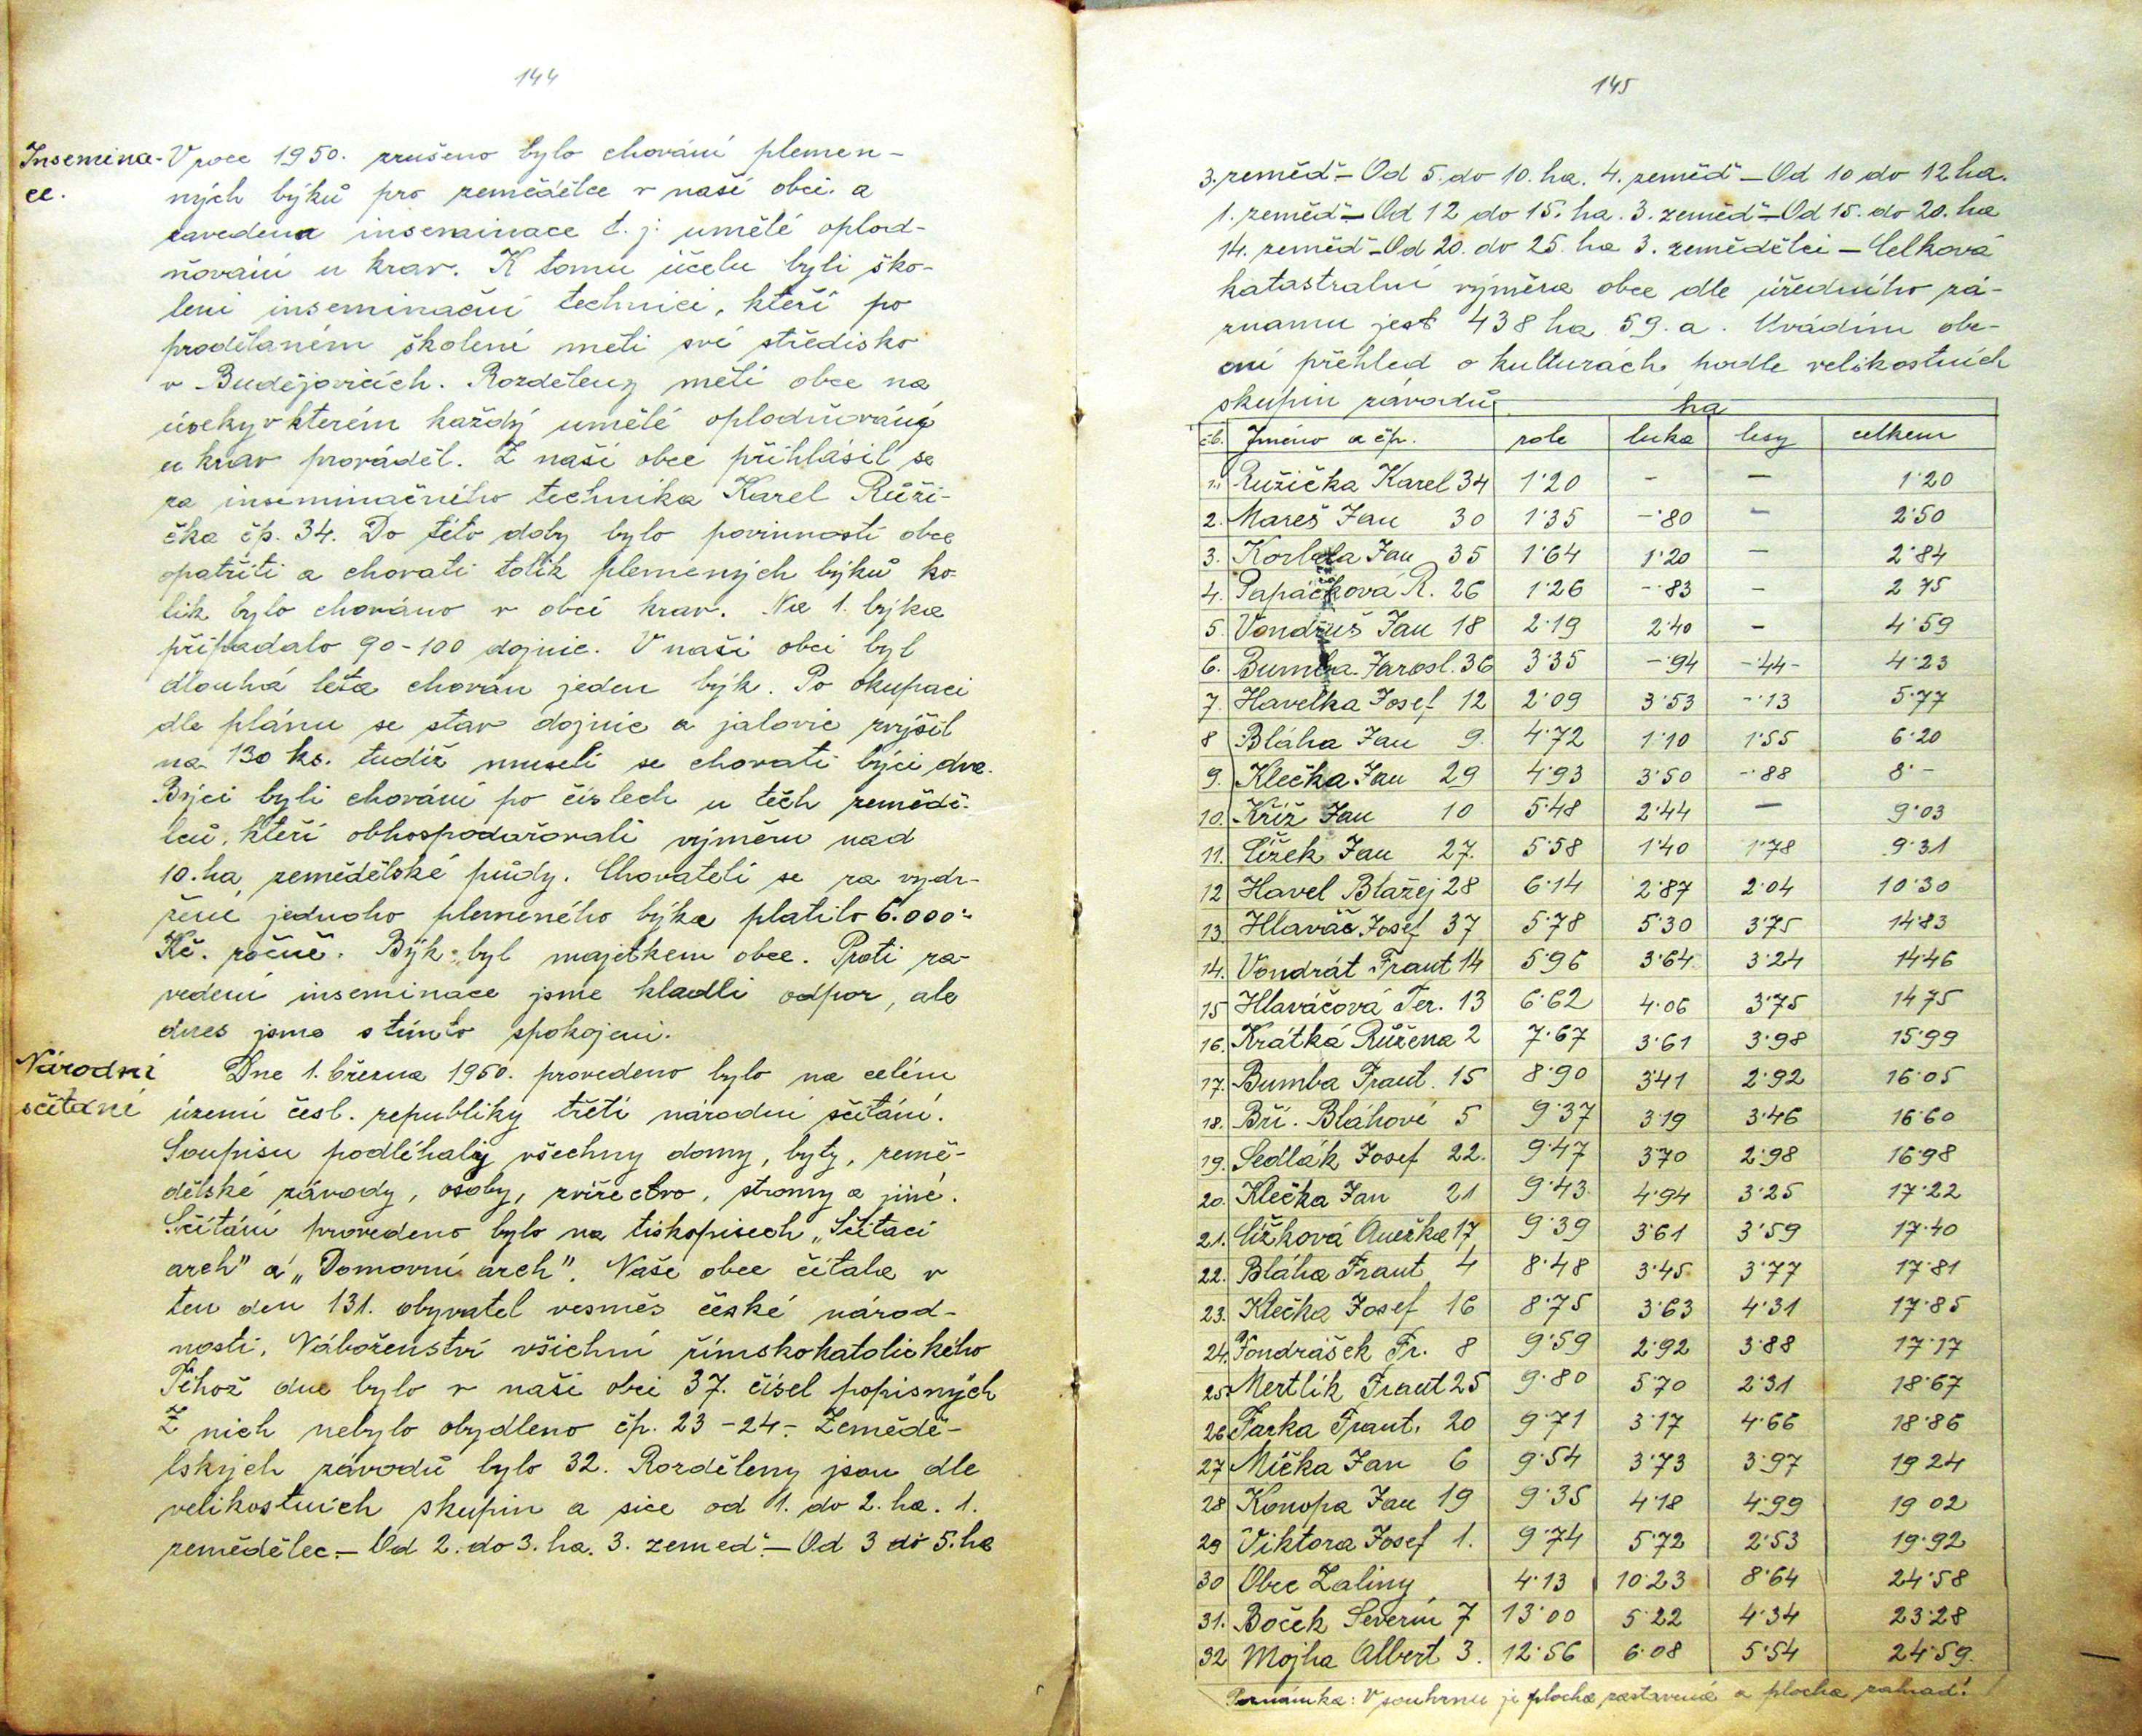 144
Insemina-
ce.
V roce 1950. zrušeno bylo chování plemen-
ných býků pro zemědělce v naší obci. a
zavedena inseminace t. j. umělé oplod-
ňování u krav. K tomu účelu byli ško-
leni inseminační technici, kteří po
prodělaném školení měli své středisko
v Budějovicích. Rozděleny měli obce na
úseky v kterém každý umělé oplodňování
u krav prováděl. Z naší obce přihlásil se
za inseminačního technika Karel Růži-
čka čp. 34. Do této doby bylo povinností obce
opatřiti a chovati tolik plemených býků ko-
lik bylo chováno v obci krav. Na 1. býka
připadalo 90-100 dojnic. V naší obci byl
dlouhá léta chován jeden býk. Po okupaci
dle plánu se stav dojnic a jalovic zvýšil
na 130 ks. tudíž museli se chovati býci dva.
Býci byli chováni po číslech u těch zeměděl-
ců, kteří obhospodařovali výměru nad
10. ha zemědělské půdy. Chovateli se za vydr-
žení jednoho plemeného býka platilo 6.000.-
Kč. ročně. Býk byl majetkem obce. Proti za-
vedení inseminace jsme kladli odpor, ale
dnes jsme s tímto spokojeni.
Národní
sčítání
Dne 1. března 1950. provedeno bylo na celém
území česl. republiky třetí národní sčítání.
Soupisu podléhaly všechny domy, byty, země-
dělské závody, osoby, zvířectvo, stromy a jiné.
Sčítání provedeno bylo na tiskopisech „Sčítací
arch" a „Domovní arch". Naše obec čítala v
ten den 131. obyvatel vesměs české národ-
nosti. Náboženství všichni římskokatolického
Téhož dne bylo v naší obci 37. čísel popisných
Z nich nebylo obydleno čp. 23 - 24.- Zemědě-
lských závodů bylo 32. Rozděleny jsou dle
velikostních skupin a sice od 1. do 2. ha. 1.
zemědělec.- Od 2. do 3. ha. 3. zeměd.- Od 3 do 5. ha
145
3. zeměd.- Od 5. do 10. ha. 4. zeměd.- Od 10 do 12 ha.
1. zeměd.- Od 12 do 15. ha. 3. zeměd.- Od 15. do 20. ha
14. zeměd.- Od 20. do 25. ha 3. zemědělci - Celková
katastralní výměra obce dle úředního zá-
znamu jest 438 ha 59. a. Uvádím obe-
cní přehled o kulturách podle velikostních
skupin závodů
ha
čb. Jméno a čp. role luka lesy celkem
1. Ružička Karel 34 1·20 - - 1·20
2. Mareš Jan 30 1·35 -·80 - 2·50
3. Korbela Jan 35 1·64 1·20 - 2·84
4. Papáčková R. 26 1·26 -·83 - 2 75
5. Vondruš Jan 18 2·19 2·40 - 4·59
6. Bumba Jarosl. 36 3·35 -·94 -·44- 4·23
7. Havelka Josef 12 2·09 3·53 -·13 5·77
8 Bláha Jan 9. 4·72 1·10 1·55 6·20
9. Klečka Jan 29 4·93 3·50 -·88 8·-
10. Kříž Jan 10 5·48 2·44 - 9·03
11. Čížek Jan 27. 5·58 1·40 1·78 9·31
12 Havel Blažej 28 6·14 2·87 2·04 10·30
13. Hlaváč Josef 37 5·78 5·30 3·75 14·83
14. Vondrát Frant 14 5·96 3·64 3·24 14·46
15 Hlaváčová Ter. 13 6·62 4·06 3·75 14 75
16. Krátká Růžena 2 7·67 3·61 3·98 15·99
17. Bumba Frant. 15 8·90 3·41 2·92 16·05
18. Bří. Bláhové 5 9·37 3·19 3·46 16·60
19. Sedlák Josef 22. 9·47 3·70 2·98 16·98
20. Klečka Jan 21 9·43 4·94 3·25 17·22
21. Čížková Anežka 17 9·39 3·61 3·59 17·40
22. Bláha Frant 4 8·48 3·45 3·77 17·81
23. Klečka Josef 16 8·75 3·63 4·31 17·85
24. Vondrášek Fr. 8 9·59 2·92 3·88 17·17
25 Mertlík Frant 25 9·80 5·70 2·31 18·67
26 Farka Frant. 20 9·71 3·17 4·66 18·86
27 Mička Jan 6 9·54 3·73 3·97 19 24
28 Konopa Jan 19 9·35 4·18 4·99 19 02
29 Viktora Josef 1. 9·74 5·72 2·53 19·92
30 Obec Zaliny 4·13 10·23 8·64 24·58
31. Boček Severin 7 13·00 5·22 4·34 23·28
32 Mojha Albert 3. 12·56 6·08 5·54 24·59.
Poznámka: V souhrnu je plocha zastavená a plocha zahrad.